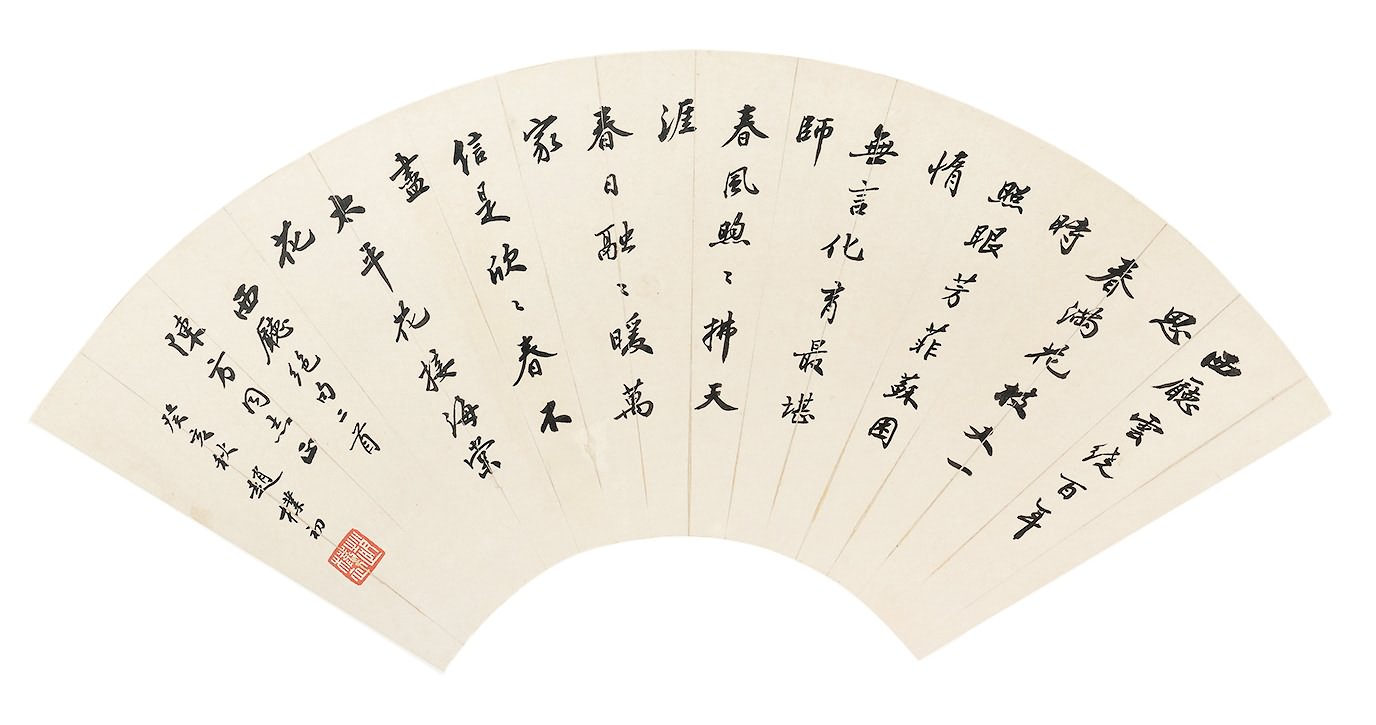 西廳雲繞百年
思
春滿花枝又一
時
照眼芳菲蘇困
惰
無言化育最堪
師
春風煦〻拂天
涯
春日融〻暖萬
家
信是欣〻春不
盡
太平花接海棠
花
西廳絕句二首
陳方同志正
癸亥秋趙樸初